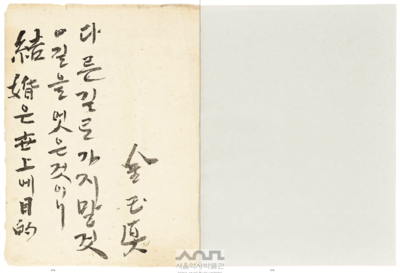 結婚은 世上에 目的
의 길을 엇은것이니
다른길로 가지말것
金玉眞
서울역사박물관